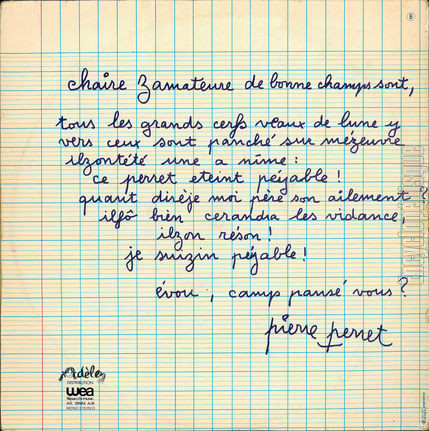 B
chaire zamateure de bonne champs sont,
tous les grands cerfs veaux de lune y
vers ceux sont panché sur mézeuvre
ilzontété une a nîme :
ce perret eteint péyable !
quant dirèje moi père son ailement ?
ilfô bien cerandra les vidance,
ilzon réson !
je suizin péyable !
évou, camp pansé vous ?
pierre perret
Adèle
DISTRIBUTION
wea
filipacchi music
MONO/STEREO
encyclopédisque